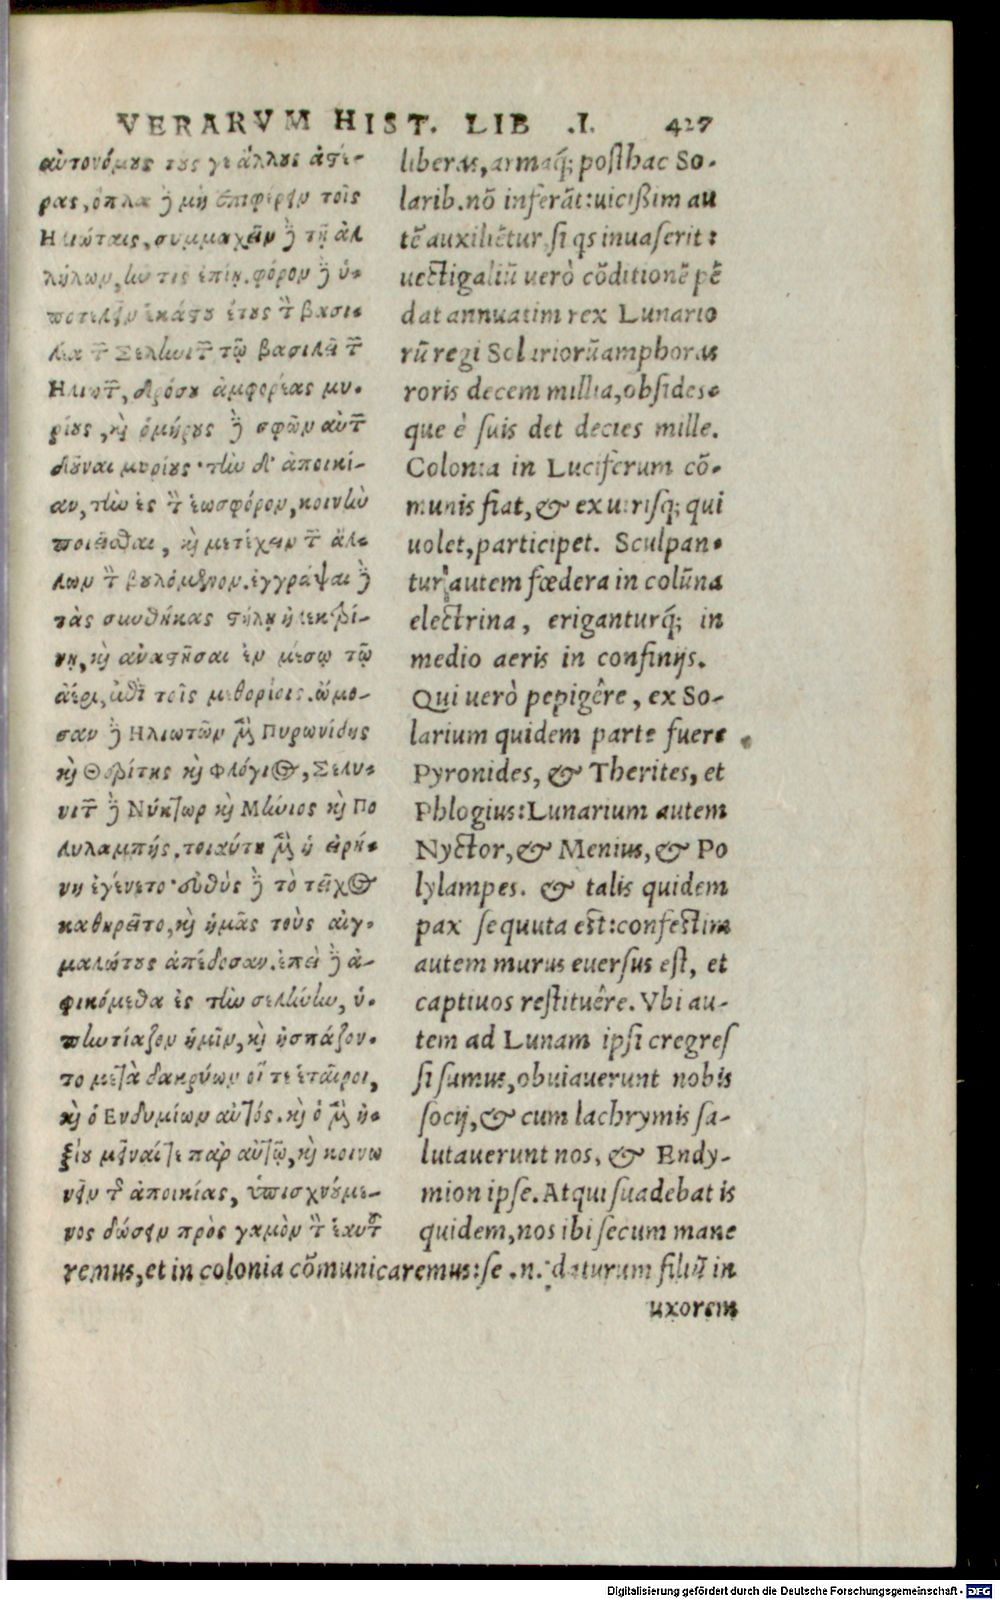 VERARVM HIST. LIB .I. 427
αὐτονόμους τούς γε ἄλλους ἀστέ-
ρας, ὅπλα ȣ̓ μὴ ἐπιφέρειν τοῖς
Ηλιώταις, συμμαχεῖν δὲ τῇ ἀλ
λήλων, ἤν τις ἐπίῃ. φόρον δὲ ὑ-
ποτελεῖν ἑκάστου ἔτους τὸν βασι-
λέα τῶν Σεληνιτῶν τῷ βασιλεῖ τῶν
Ηλιωτῶν, δρόσου ἀμφορέας μυ-
ρίους, καὶ ὁμήρους δὲ σφῶν αὐτῶν
δοῦναι μυρίους· τὴν δ' ἀποικί-
αν, τὴν ἐς τὸν ἑωσφόρον, κοινὴν
ποιεῖσθαι, καὶ μετέχειν τῶν ἄλ-
λων τὸν βουλόμενον. ἐγγράψαι δὲ
τὰς συνθήκας στήλῃ ἠλεκτρί-
νῃ, καὶ ἀναστῆσαι ἐν μέσῳ τῷ
ἀέρι, ἐπὶ τοῖς μεθορίοις. ὤμο-
σαν δὲ Ηλιωτῶν μὲν Πυρωνίδης
καὶ Θερίτης καὶ Φλόγιος, Σελη-
νιτῶν δὲ Νύκτωρ καὶ Μήνιος καὶ Πο
λυλαμπής. τοιαύτη μὲν ἡ εἰρή-
νη ἐγένετο· εὐθὺς δὲ τὸ τεῖχος
καθῃρεῖτο, καὶ ἡμᾶς τοὺς αἰχ-
μαλώτους ἀπέδοσαν. ἐπεὶ δὲ ἀ-
φικόμεθα ἐς τὴν σελήνην, ὑ-
πηντίαζον ἡμῖν, καὶ ἠσπάζον-
το μετὰ δακρύων οἵ τε ἑταῖροι,
καὶ ὁ Ενδυμίων αὐτός. καὶ ὁ μὲν ἠ-
ξίου μεῖναί τε παρ αὐτῷ, καὶ κοινω
νεῖν τῆς ἀποικίας, ὑπισχνούμε-
νος δώσειν πρὸς γαμὸν τὸν ἑαυτοῦ
liberas, armaq́; posthac So-
larib. nō inferāt: uicißim au
tē auxiliētur, si qs inuaserit:
uectigaliū uerò cōditionē pē
dat annuatim rex Lunario
rū regi Solarioru᷃ amphoras
roris decem millia, obsides-
que è suis det decies mille.
Colonia in Luciferum cō-
munis fiat, & ex utrisq; qui
uolet, participet. Sculpan-
tur autem fœdera in colūna
electrina, eriganturq́; in
medio aeris in confinijs.
Qui uerò pepigêre, ex So-
larium quidem parte fuere
Pyronides, & Therites, et
Phlogius: Lunarium autem
Nyctor, & Menius, & Po
lylampes. & talis quidem
pax sequuta est: confestim
autem murus euersus est, et
captiuos restituêre. Vbi au-
tem ad Lunam ipsi cregres
si sumus, obuiauerunt nobis
socij, & cum lachrymis sa-
lutauerunt nos, & Endy-
mion ipse. Atqui suadebat is
quidem, nos ibi secum mane
remus, et in colonia cōmunicaremus: se .n. daturum filiū in
uxorem
Digitalisierung gefördert durch die Deutsche Forschungsgemeinschaft - DFG